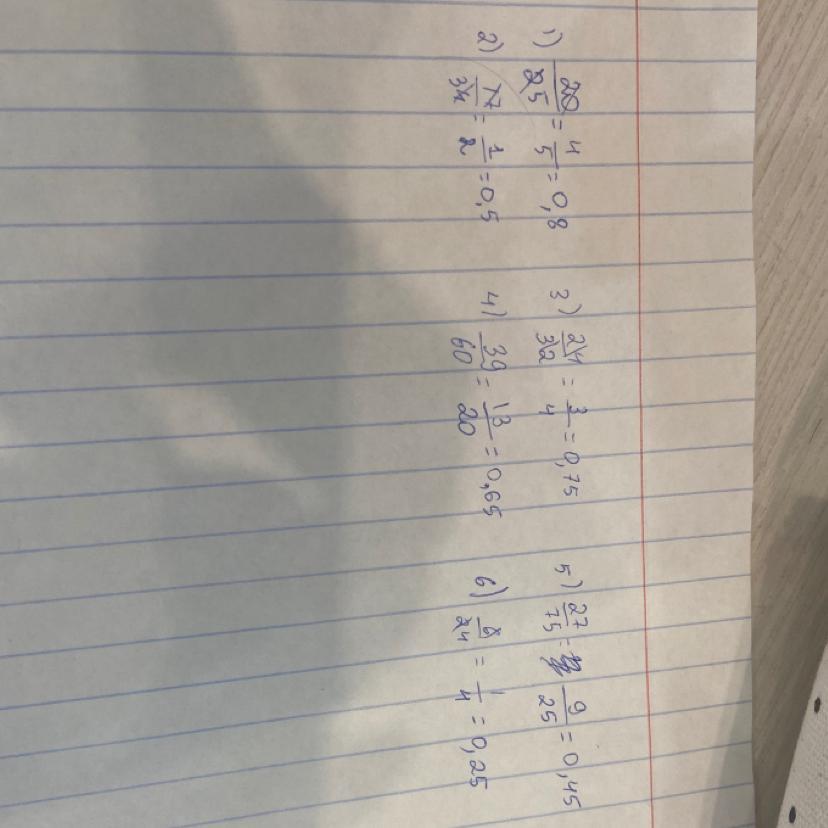 1) 20/25 = 4/5 = 0,8
2) 17/34 = 1/2 = 0,5
3) 24/32 = 3/4 = 0,75
4) 39/60 = 13/20 = 0,65
5) 27/75 = 9/25 = 0,45
6) 6/24 = 1/4 = 0,25